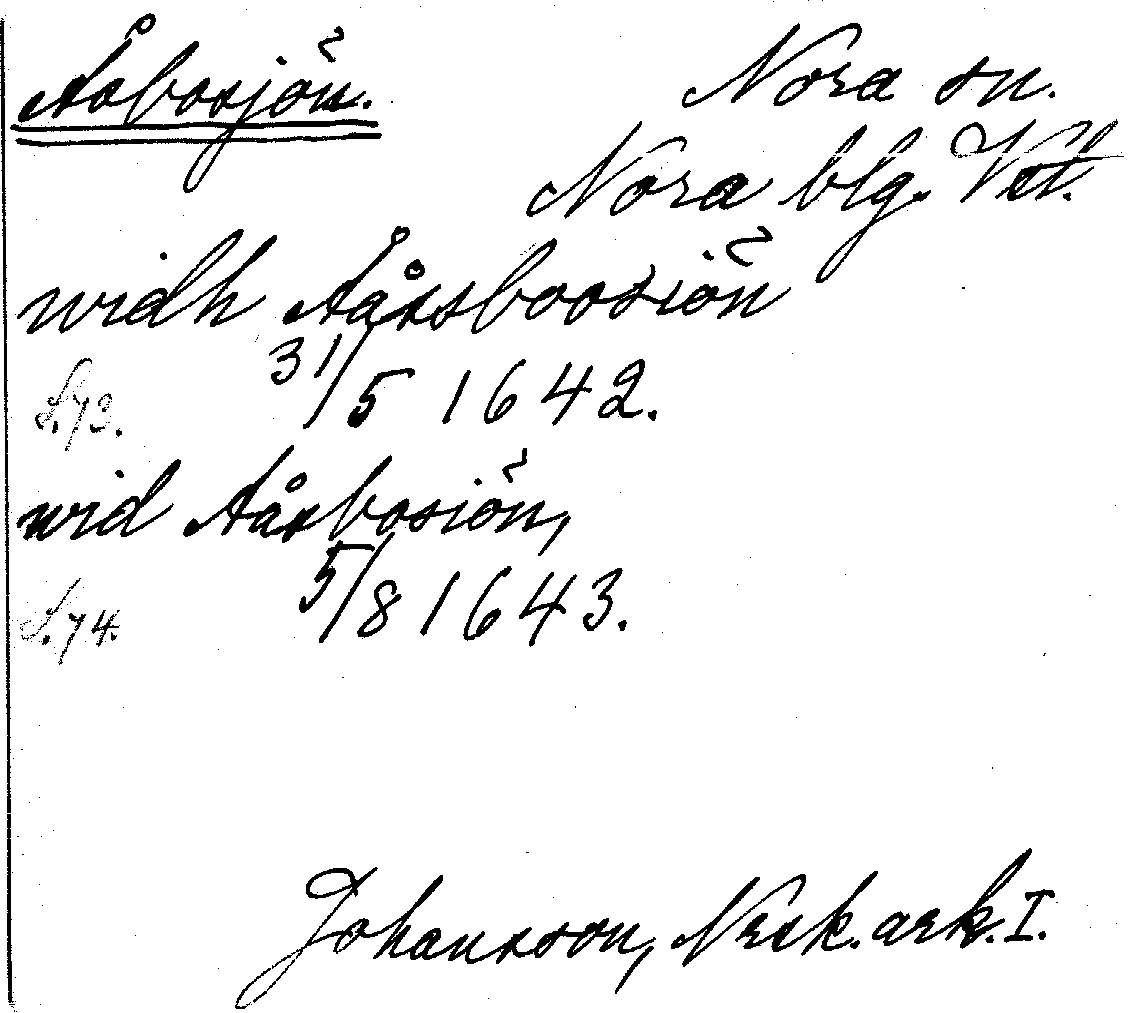 Åsbosjön. Nora sn.
Nora blg. Vstml.
widh Åårsboosiön
31/5 1642.
S. 73.
wid Aårbosiön,
5/8 1643.
S. 74.
Johansson, Norsk. ark. I.